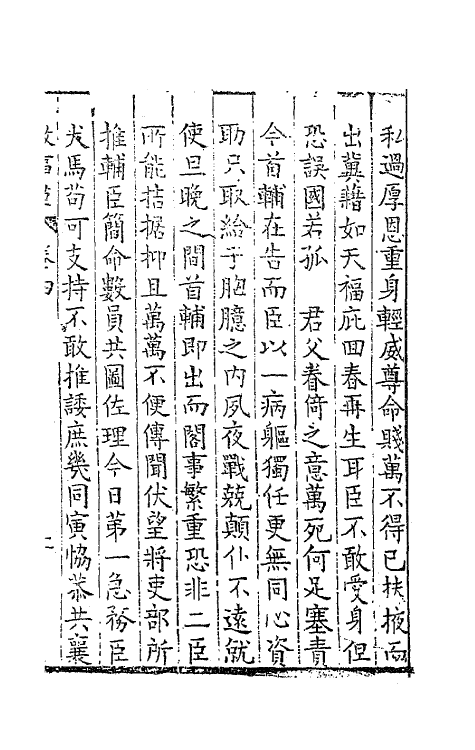 私過厚恩重身輕威尊命賤萬不得已扶掖而
出冀藉如天福庇回春再生耳臣不敢愛身但
恐誤國若孤　君父眷倚之意萬死何足塞責
今首輔在告而臣以一病軀獨任更無同心資
助只取給于胸臆之内夙夜戰兢顛仆不遠就
使旦晚之間首輔即出而閣事繁重恐非二臣
所能拮据抑且萬萬不便傳聞伏望將吏部所
推輔臣簡命數員共圖佐理今日第一急務臣
犬馬苟可支持不敢推諉庶幾同寅恊恭共襄
卷四